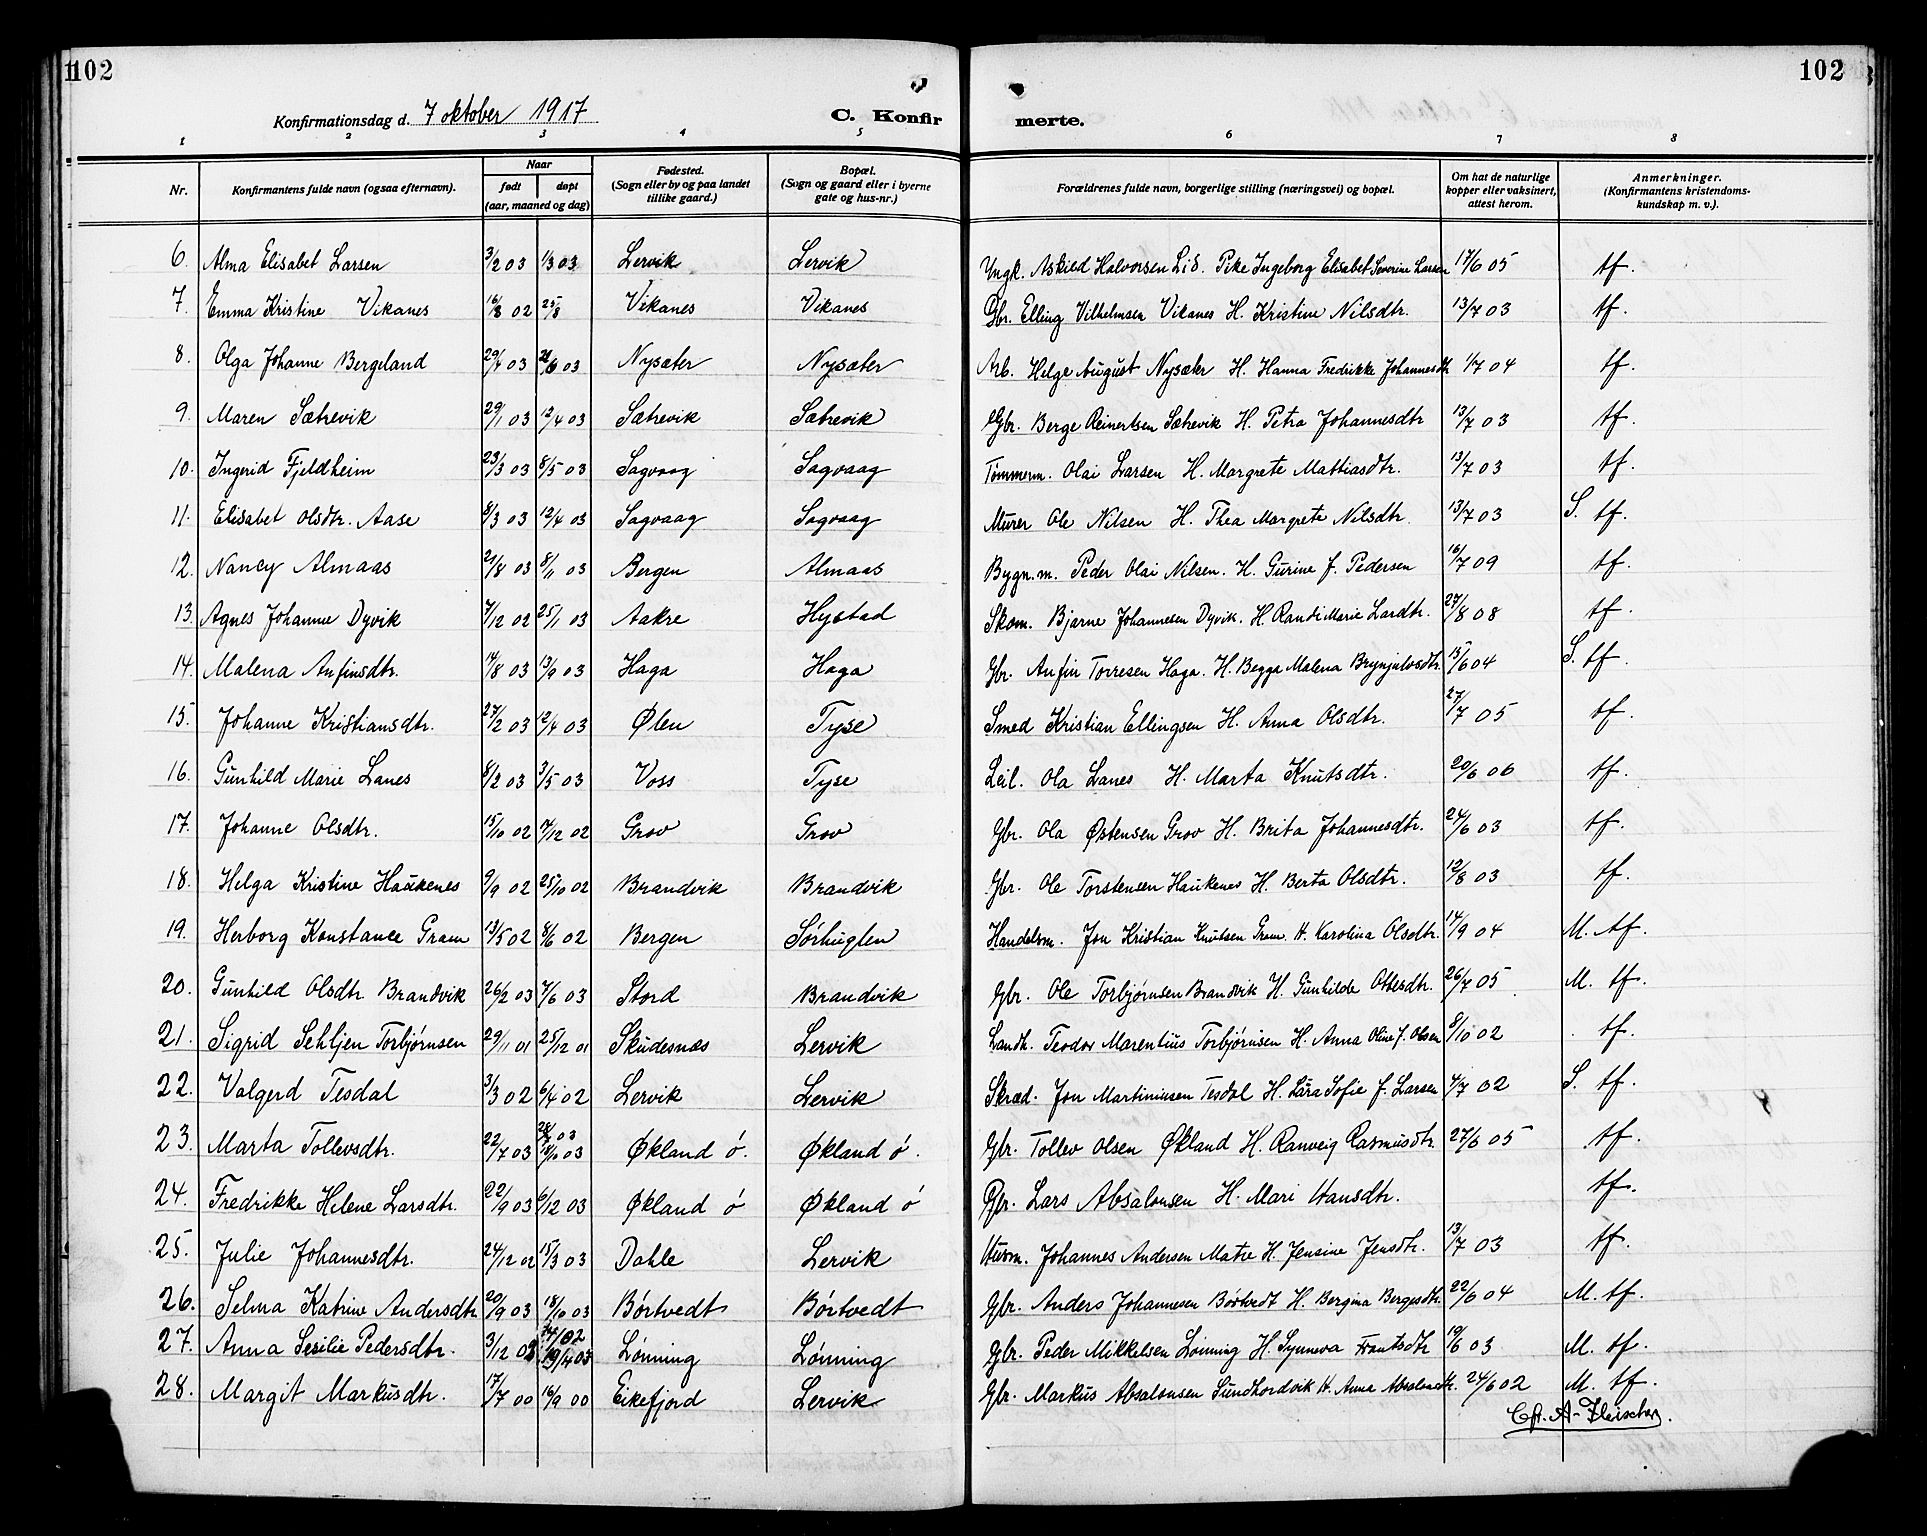 102 102
Konfirmationsdag d. 7 oktober 1917 C. Konfir merte.
1 2 3 4 5 6 7 8
Nr. Konfirmantens fulde navn (ogsaa efternavn). Naar født døpt (aar, maaned og dag) Fødested. (Sogn eller by og paa landet tillike gaard.) Bopæl. (Sogn og gaard eller i byerne gate og hus-nr.) Forældrenes fulde navn, borgerlige stilling (næringsvei) og bopæl. Om hat de naturlige kopper eller vaksinert, attest herom. Anmerkninger. (Konfirmantens kristendoms-kundskap m. v.).
6. Alma Elisabet Larsen 3/2 03 1/3 03 Lervik Lervik Ungk. Askild Halvorsen Lid. Pike Ingeborg Elisabet Severine Larsen 17/6 05 tf.
7. Emma Kristine Vikanes 16/8 02 25/8 Vikanes Vikanes Gbr. Elling Vilhelmsen Vikanes H. Kristine Nilsdtr. 13/7 03 tf.
8. Olga Johanne Bergeland 29/4 03 21/6 03 Nysæter Nysæter Arb. Helge August Nysæter H. Hanna Fredrikke Johannesdtr 1/7 04 tf.
9. Maren Sætrevik 29/1 03 12/4 03 Sætrevik Sætrevik Gbr. Berge Reinertsen Sætrevik H. Petra Johannesdtr 13/7 03 tf.
10. Ingerid Fjeldheim 23/3 03 8/5 03 Sagvaag Sagvaag Tømmerm. Olai Larsen H. Margrete Mattiasdtr. 13/7 03 tf.
11. Elisabet Olsdtr. Aase 8/3 03 12/4 03 Sagvaag Sagvaag Murer Ole Nilsen H. Thea Margrete Nilsdtr. 13/7 03 S. tf.
12. Nancy Almaas 21/8 03 8/11 03 Bergen Almaas Bygn.m. Peder Olai Nilsen. H. Gurine f. Pedersen 16/7 09 tf.
13. Agnes Johanne Dyvik 7/12 02 25/1 03 Aakre Hystad Skom. Bjarne Johannesen Dyvik. H. Randi Marie Lardtr. 27/8 08 tf.
14. Malena Anfinsdtr. 14/8 03 13/9 03 Haga Haga Gbr. Anfin Torresen Haga. H. Begga Malena Brynjulvsdtr. 15/6 04 S. tf.
15. Johanne Kristiansdtr. 27/2 03 12/4 03 Ølen Tyse Smed Kristian Ellingsen H. Anna Olsdtr. 27/7 05 tf.
16. Gunhild Marie Lanes 8/2 03 3/5 03 Voss Tyse Leil. Ola Lanes H. Marta Knutsdtr. 20/6 06 tf.
17. Johanne Olsdtr. 15/10 02 7/12 02 Grov Grov Gbr. Ola Østensen Grov H. Brita Johannesdtr. 24/6 03 tf.
18. Helga Kristine Haukenes 9/9 02 25/10 02 Brandvik Brandvik Gbr. Ole Torstensen Haukenes H. Berta Olsdtr. 12/8 03 tf.
19. Herborg Konstance Gram 13/5 02 8/6 02 Bergen Sørhuglen Handelsm. Jon Kristian Knutsen Gram H. Karolina Olsdtr. 14/9 04 M. tf.
20. Gunhild Olsdtr Brandvik 26/2 03 7/6 03 Stord Brandvik Gbr. Ole Torbjørnsen Brandvik H. Gunhilde Ottesdtr. 26/7 05 M. tf.
21. Sigrid Sehljen Torbjørnsen 29/11 01 25/12 01 Skudesnæs Lervik Landh. Teodor Marentius Torbjørnsen H. Anna Oline f. Olsen 8/10 02 tf.
22. Valgerd Tesdal 3/3 02 6/4 02 Lervik Lervik Skræd. Jon Martiniusen Tesdal H. Lara Sofie f. Larsen 4/7 02 S. tf.
23. Marta Tollevsdtr. 22/7 03 18/10 03 Økland ø. Økland ø. Gbr. Tollev Olsen Økland H. Ranveig Rasmusdtr. 27/6 05 tf.
24. Fredrikke Helene Larsdtr. 22/9 03 6/12 03 Økland ø Økland ø Gbr. Lars Absalonsen H. Mari Hansdtr. tf.
25. Julie Johannesdtr. 24/12 02 15/3 03 Dahle Lervik Husm. Johannes Andersen Matre H. Jensine Jensdtr. 13/7 03 tf.
26. Selma Katrine Andersdtr 20/9 03 18/10 03 Børtvedt Børtvedt Gbr. Anders Johannesen Børtvedt H. Bergina Bergesdtr. 22/6 04 M. tf.
27. Anna Sesilie Pedersdtr. 3/12 02 19/4 03 Lønning Lønning Gbr. Peder Mikkelsen Lønning H. Synneva Frantsdtr 19/6 03 M. tf.
28. Margit Markusdtr. 17/7 00 16/9 00 Eikefjord Lervik Gbr. Markus Absalonsen Sundhordvik H. Anna Absalonsdtr. 24/6 02 M. tf.
Chr. A. Fleischer.